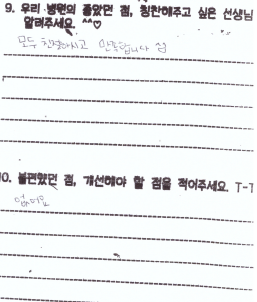 9. 우리 병원의 좋았던 점, 칭찬해주고 싶은 선생님
알려주세요. ^^♡
모두 친절하시고 만족합니다
10. 불편했던 점, 개선해야 할 점을 적어주세요. T-T
없어요